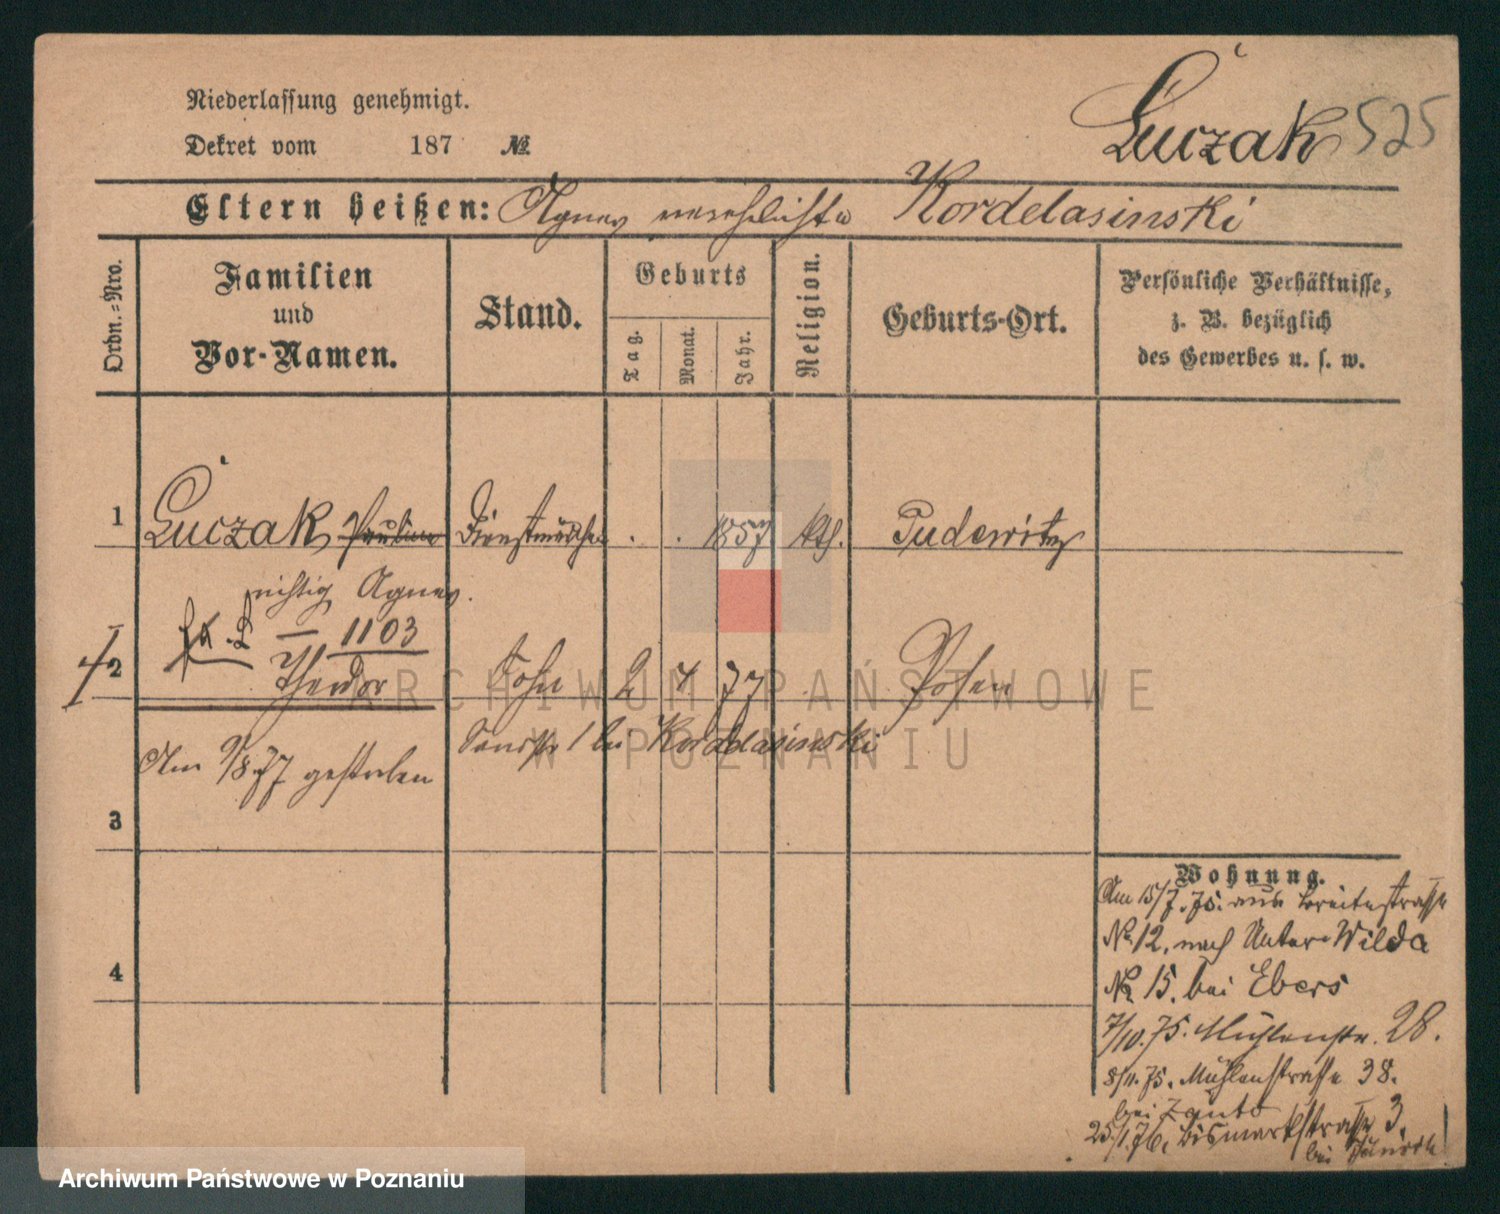 Niederlassung genehmigt.
Dekret vom 187 №
Łuczak 525
Eltern heißen: Agnes verehelichte Kordelasinski
Ordn.-Nro.
Familien
und
Vor-Namen.
Stand.
Geburts
Tag.
Monat.
Jahr.
Religion.
Geburts-Ort.
Persönliche Verhältnisse,
z. B. bezüglich
des Gewerbes u. s. w.
1 Łuczak, Pauline Dienstmädchen . . 1857 kth. Pudewitz
richtig Agnes.
— 1103
† 2 Theodor Sohn 2 4 77 Posen
1 bei Kordelasinski
Am 9/8.77 gestorben
3
4
Wohnung.
Am 15/7.75. aus Breitestraße
No. 12. nach Unter-Wilda
No. 15. bei Ebers
7/10.75. Mühlenstr. 28.
8/11.75. Mühlenstraße 38.
bei
25/1.76. Bismarkstraße 3.
bei
ARCHIWUM PAŃSTWOWE
W POZNANIU
Archiwum Państwowe w Poznaniu